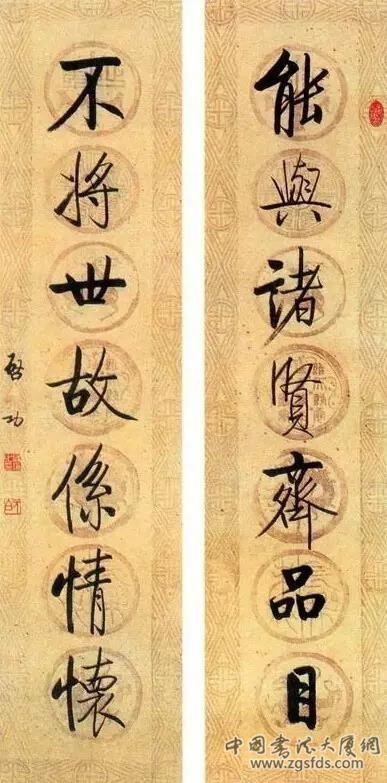 能與諸賢齊品目
不將世故係情懷
啓功
中国书法大厦网
www.zgsfds.com